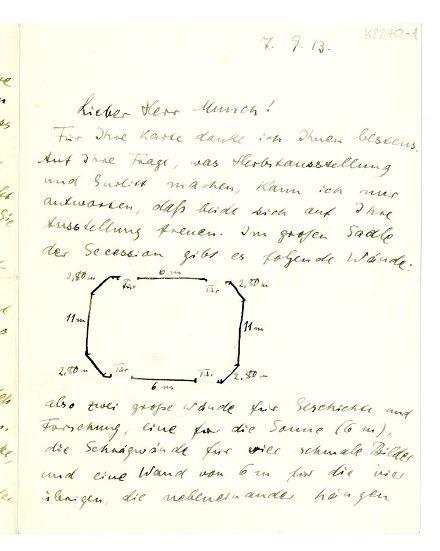 K2270-1
7. 9. 13.
Lieber Herr Munch!
Für Ihre Karte danke ich Ihnen bestens.
Auf Ihre Frage, was Herbstausstellung
und Gurlitt machen, kann ich nur
antworten, daß beide sich auf Ihre
Ausstellung freuen. Im großen Saale
der Secession gibt es folgende Wände:
2,80m Tür 6 m Tür 2,80m
11m 11m
2,80m Tür 6 m Tür 2,80m
also zwei große Wände für Geschichte und
Forschung, eine für die Sonne (6 m),
die Schrägwände für vier schmale Bilder
und eine Wand von 6m für die vier
übrigen, die nebeneinander hängen